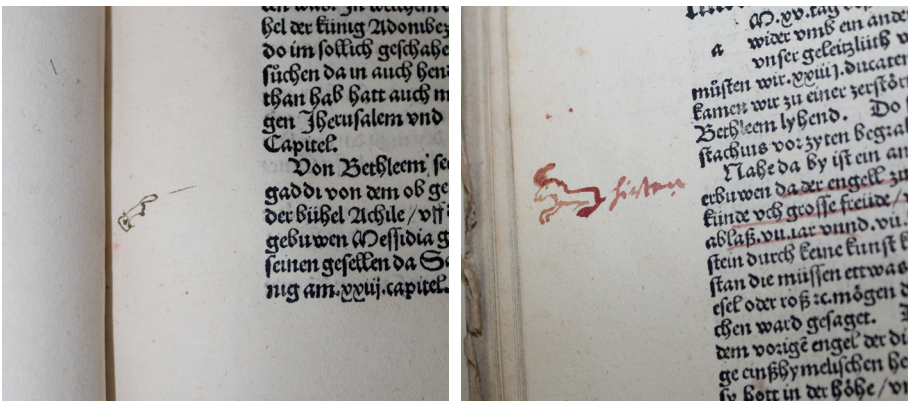 hel der künig Adonibez
do im sollich geschahe
sůchen da in auch hen
than hab hatt auch m
gen Jherusalem vnd
Capitel.
Von Bethleem se
gaddi von dem ob ge
der bühel Achile / vff
gebuwen Messidia g
seinen gesellen da Sa
nig am.xxiij.capitel.
M.xv.tag
a wider vmb ein ande
vnser geleitzlüth v
můsten wir.xxiiij.ducaten
kamen wir zu einer zerstör
Bethleem lyhend. Do
stachius vor zyten begra
Nahe da by ist ein an
hirten
erbuwen da der engell zu
künde vch grosse freüde / v
ablaß.vij.iar vnnd.vij.
stein durch keine kunst
stan die müssen ettwas
esel oder roß ⁊c.mögen d
chen ward gesaget.
dem vorigē engel der di
ge einßhymelischen he
sy gott in der höhe / vn